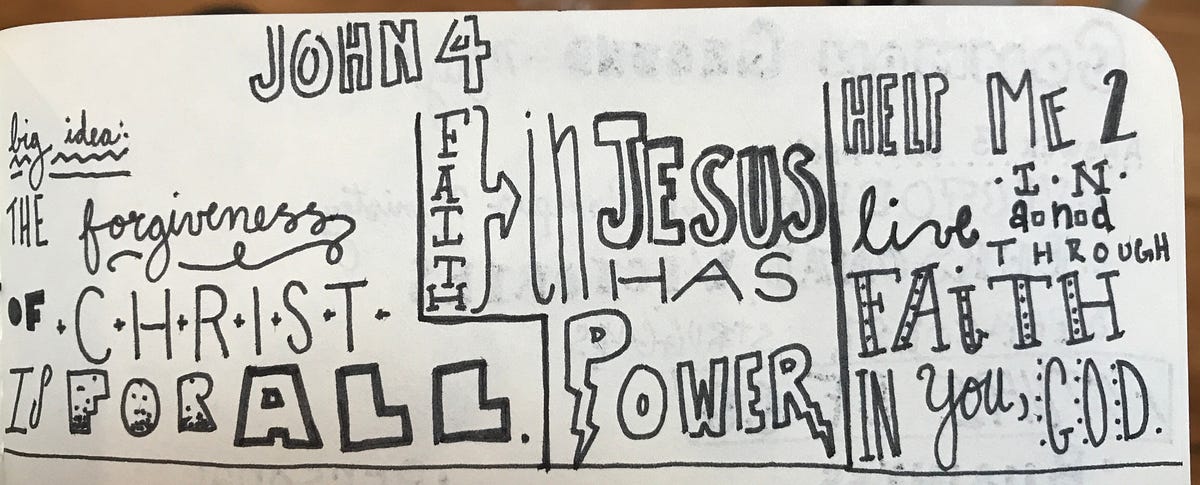 JOHN 4
big idea:
THE forgiveness
OF C·H·R·I·S·T
IS FOR ALL.
FAITH in JESUS
HAS
POWER
HELP ME 2
live ·I·N·
aond
THROUGH
FAiTH
IN you, GOD.